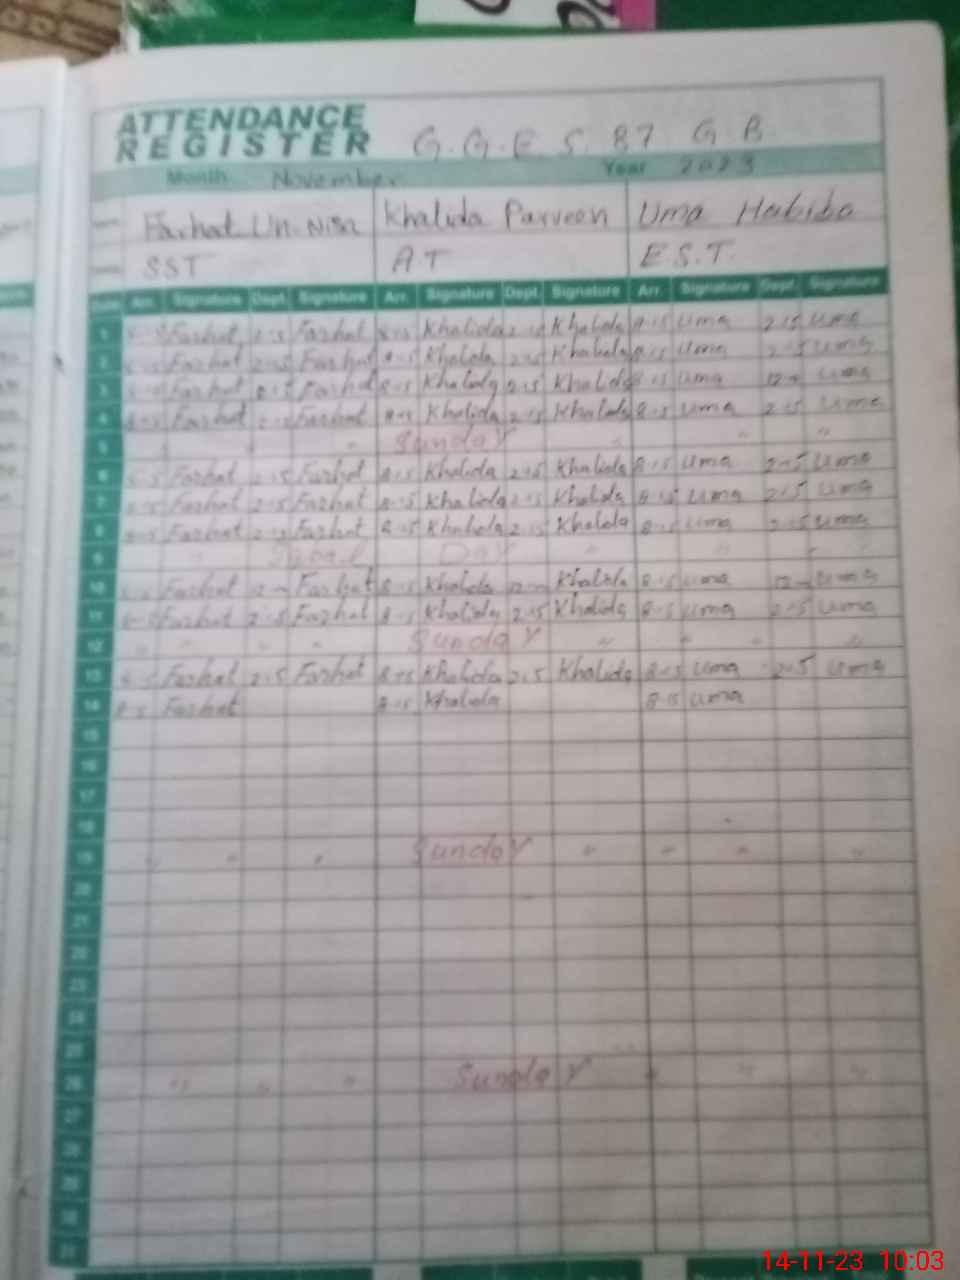 ATTENDANCE
REGISTER G.G.E.S. 87 G B
Month November Year 2023
Farhat Un. Nisa Khalida Parveen Uma Habiba
SST A.T E.S.T.
Arr. Signature Dept. Signature Arr. Signature Dept. Signature Arr. Signature Dept. Signature
1 Farhat Farhat Khalida Khalida Uma Uma
2 Farhat Farhat Khalida Khalida Uma Uma
3 Farhat Farhat Khalida Khalida Uma Uma
4 Farhat Farhat 8-15 Khalida 2-15 Khalida 8-15 Uma 2-15 Uma
5 Sunday
6 Farhat Farhat 8-15 Khalida 2-15 Khalida 8-15 Uma 2-15 Uma
7 Farhat Farhat 8-15 Khalida 2-15 Khalida 8-15 Uma 2-15 Uma
8 Farhat Farhat 8-15 Khalida 2-15 Khalida 8-15 Uma 2-15 Uma
9 Day
10 Farhat Farhat 8-15 Khalida Khalida 8-15 Uma Uma
11 Farhat Farhat 8-15 Khalida 2-15 Khalida 8-15 Uma 2-15 Uma
12 Sunday
13 Farhat Farhat 8-15 Khalida 2-15 Khalida 8-15 Uma 2-15 Uma
14 Farhat 8-15 Khalida 8-15 Uma
15
16
17
18
19 Sunday
20
21
22
23
24
25
26 Sunday
27
28
29
30
31
14-11-23 10:03